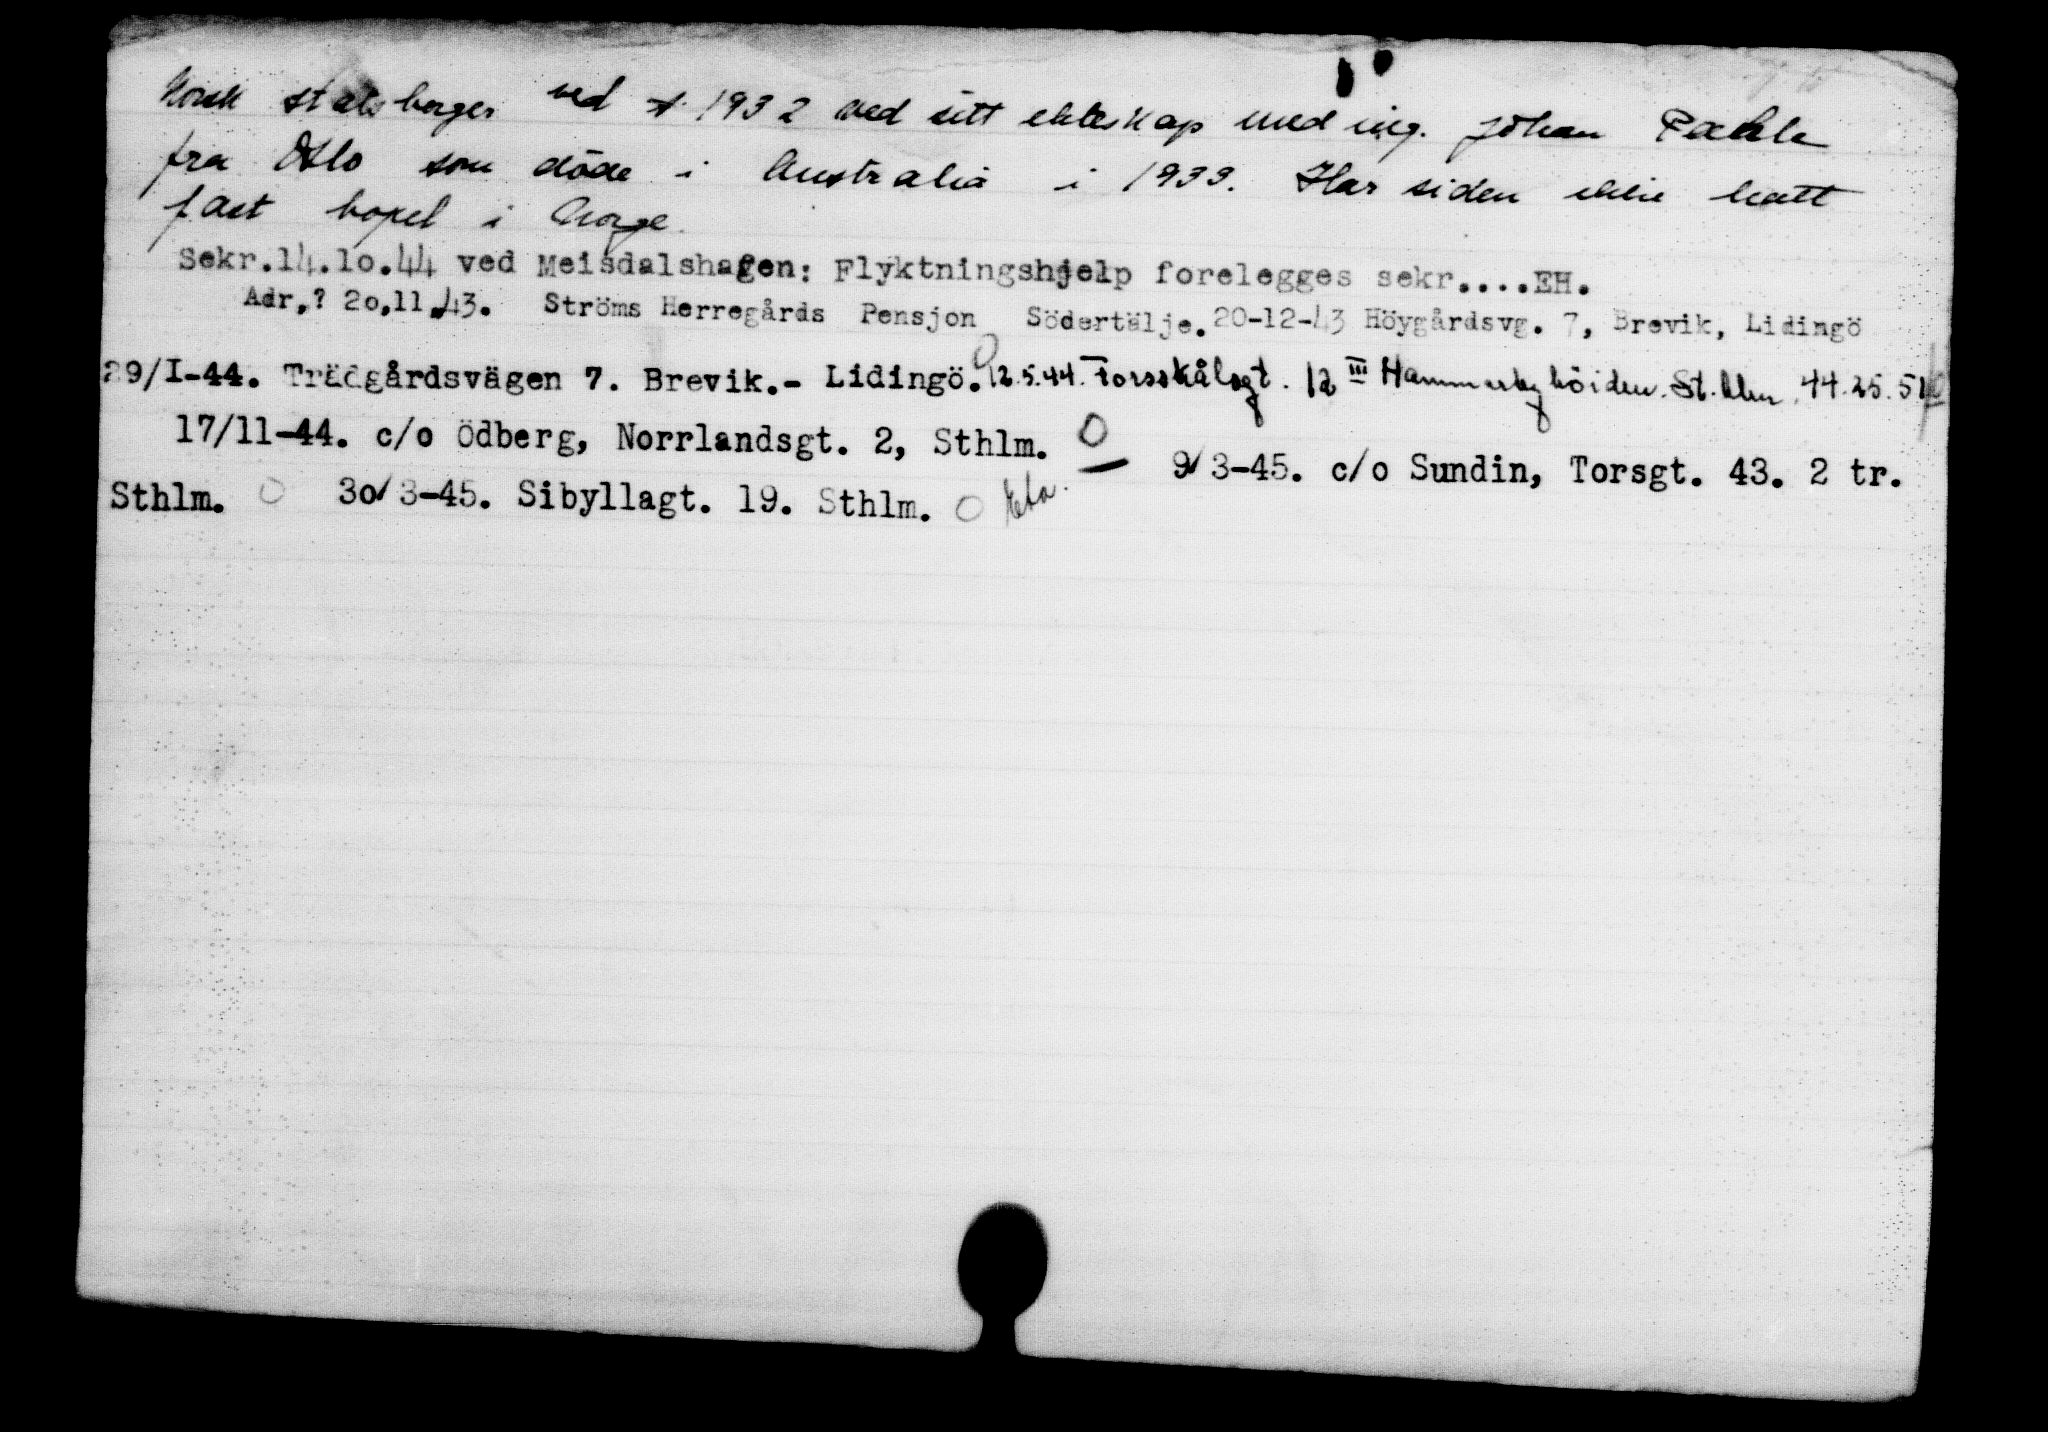 Norsk statsborger ved 1932 ved sitt ekteskap med ing. Johan
fra Oslo som döde i Australia i 1933. Har siden ikke hatt
fast bopel i Norge.
Sekr.14.10.44 ved Meisdalshagen: Flyktningshjelp forelegges sekr....EH.
Adr,? 20,11.43. Ströms Herregårds Pensjon Södertälje. 20-12-43 Höygårdsvg. 7, Brevik, Lidingö
29/I-44. Trädgårdsvägen 7. Brevik.- Lidingö. 12.5.44. Forsskålsgt. 12 III Hammarbyhöiden. St.hlm. 44.25.51
17/11-44. c/o Ödberg, Norrlandsgt. 2, Sthlm. 9/3-45. c/o Sundin, Torsgt. 43. 2 tr.
Sthlm. 30/3-45. Sibyllagt. 19. Sthlm.